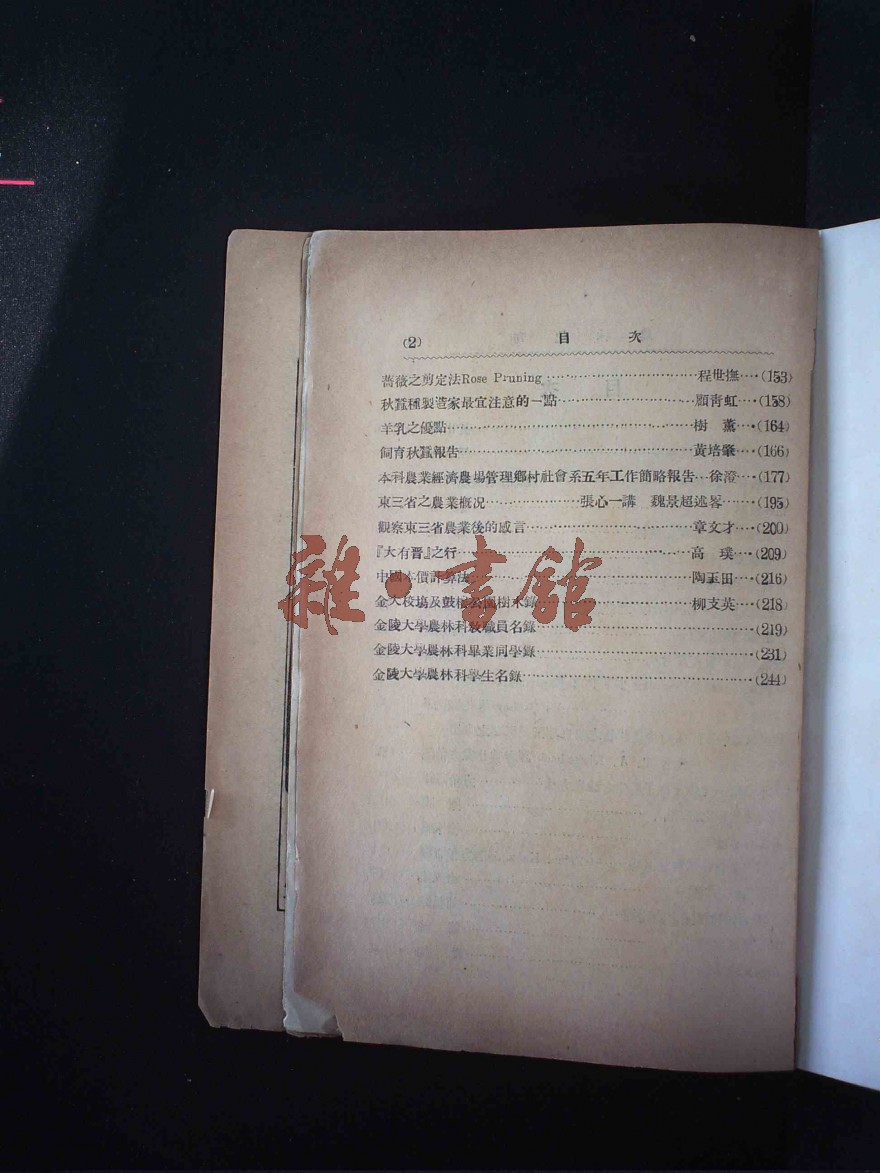 (2) 目 次
薔薇之剪定法Rose Pruning……程世撫…(153)
秋蠶種製造家最宜注意的一點……顧靑虹…(158)
羊乳之優點……樹 薰…(164)
飼育秋蠶報吿……黃培肇…(166)
本科農業經濟農塲管理鄕村社會系五年工作簡略報吿…徐澄…(177)
東三省之農業槪况……張心一講 魏景超述畧…(195)
觀察東三省農業後的感言……章文才…(200)
『大有晋』之行……高 璞…(209)
中國木價計算法……陶玉田…(216)
金大校塲及鼓樓公園樹木錄……柳支英…(218)
金陵大學農林科敎職員名錄……(219)
金陵大學農林科畢業同學錄……(231)
金陵大學農林科學生名錄……(244)
雜·書館